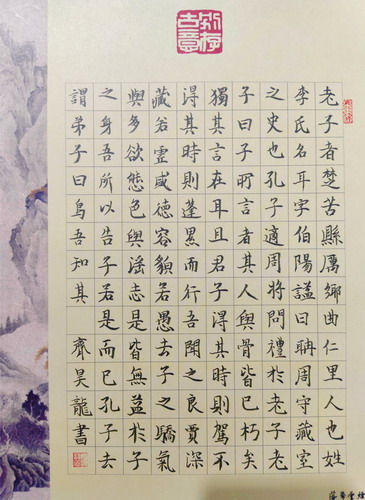 別存古意
老子者楚苦縣厲鄉曲仁里人也姓
李氏名耳字伯陽謚曰聃周守藏室
之史也孔子適周將問禮於老子老
子曰子所言者其人與骨皆已朽矣
獨其言在耳且君子得其時則駕不
得其時則蓬累而行吾聞之良賈深
藏若虛盛德容貌若愚去子之驕氣
與多欲態色與淫志是皆無益於子
之身吾所以告子若是而已孔子去
謂弟子曰鳥吾知其
齊昊龍書